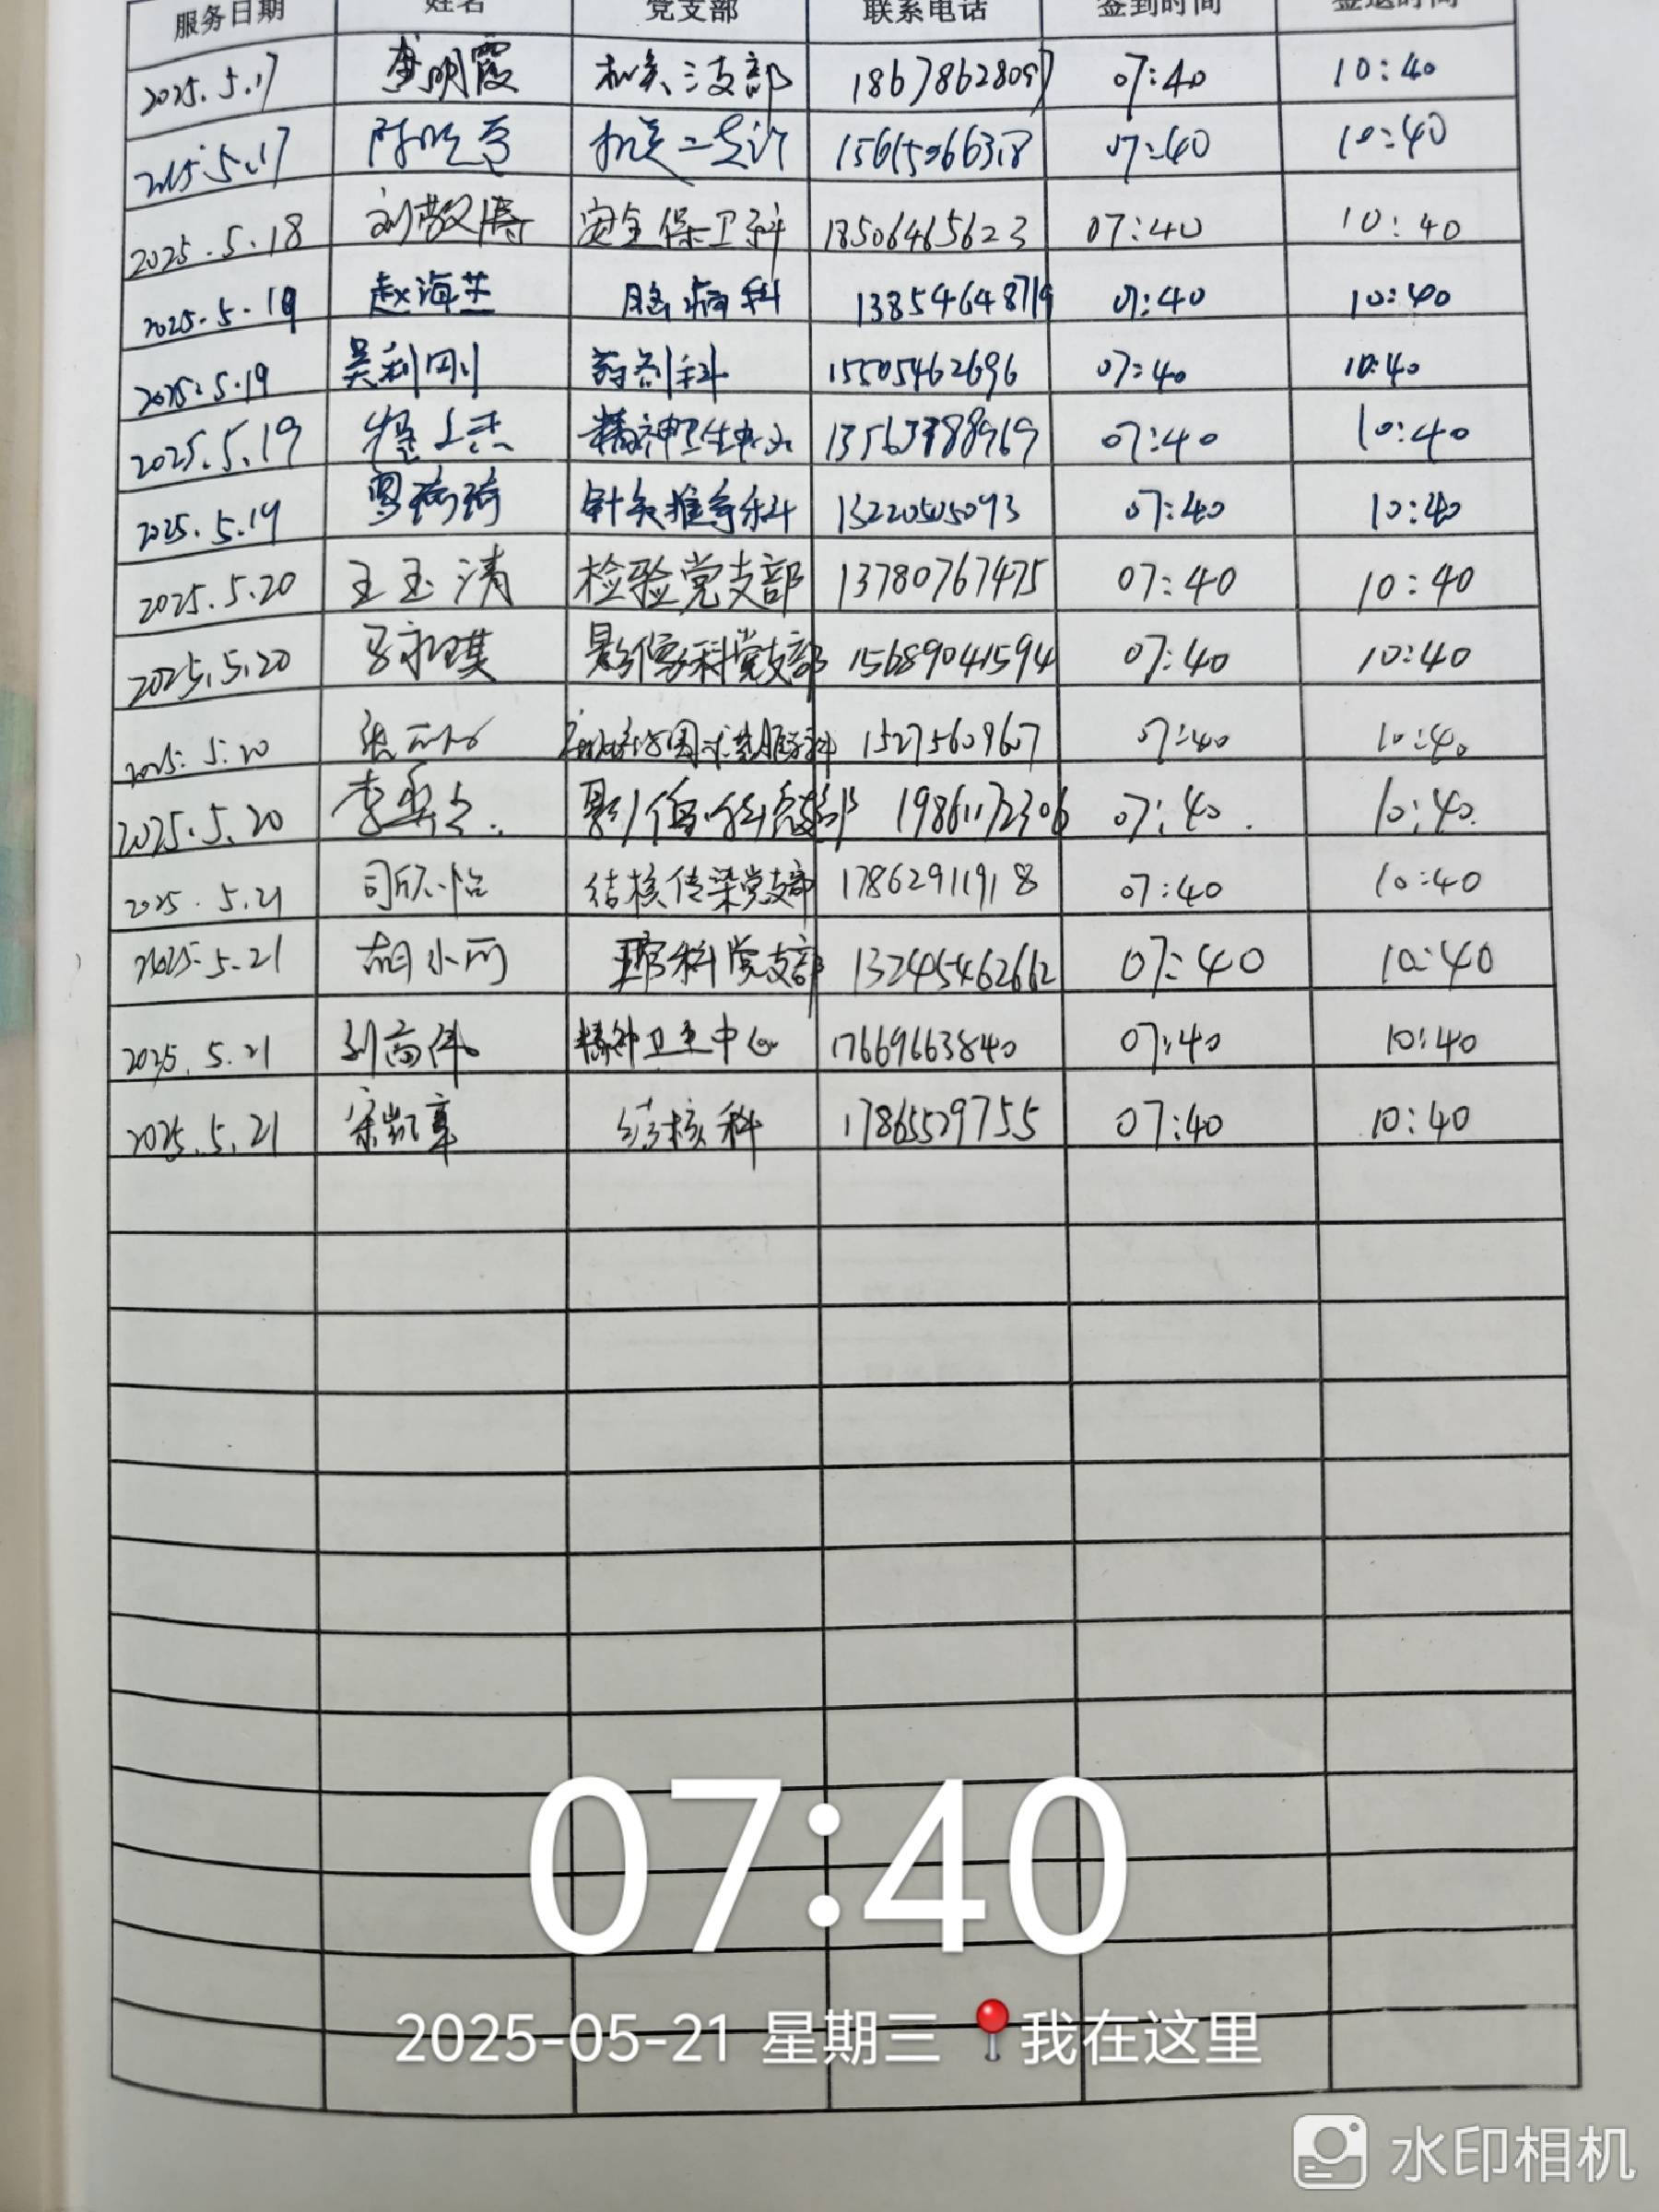 服务日期 姓名 党支部 联系电话 签到时间 签退时间
2025.5.17 李明霞 机关三支部 18678628097 07:40 10:40
2025.5.17 机关二支部 15615066318 07:40 10:40
2025.5.18 刘敬涛 安全保卫科 18506465623 07:40 10:40
2025.5.19 赵海兰 脑病科 13854648719 07:40 10:40
2025.5.19 吴利刚 药剂科 15505462696 07:40 10:40
2025.5.19 精神卫生中心 13563788969 07:40 10:40
2025.5.19 罗琦琦 针灸推拿科 13220505093 07:40 10:40
2025.5.20 王玉清 检验党支部 13780767475 07:40 10:40
2025.5.20 影像科党支部 15689041594 07:40 10:40
2025.5.20 15275609607 07:40 10:40
2025.5.20 影像科党支部 19861172306 07:40 10:40
2025.5.21 司欣怡 结核传染党支部 17862911918 07:40 10:40
2025.5.21 胡小丽 科党支部 13245462662 07:40 10:40
2025.5.21 刘高伟 精神卫生中心 17669663840 07:40 10:40
2025.5.21 宋凯章 结核科 17865529755 07:40 10:40
07:40
2025-05-21 星期三 我在这里
水印相机